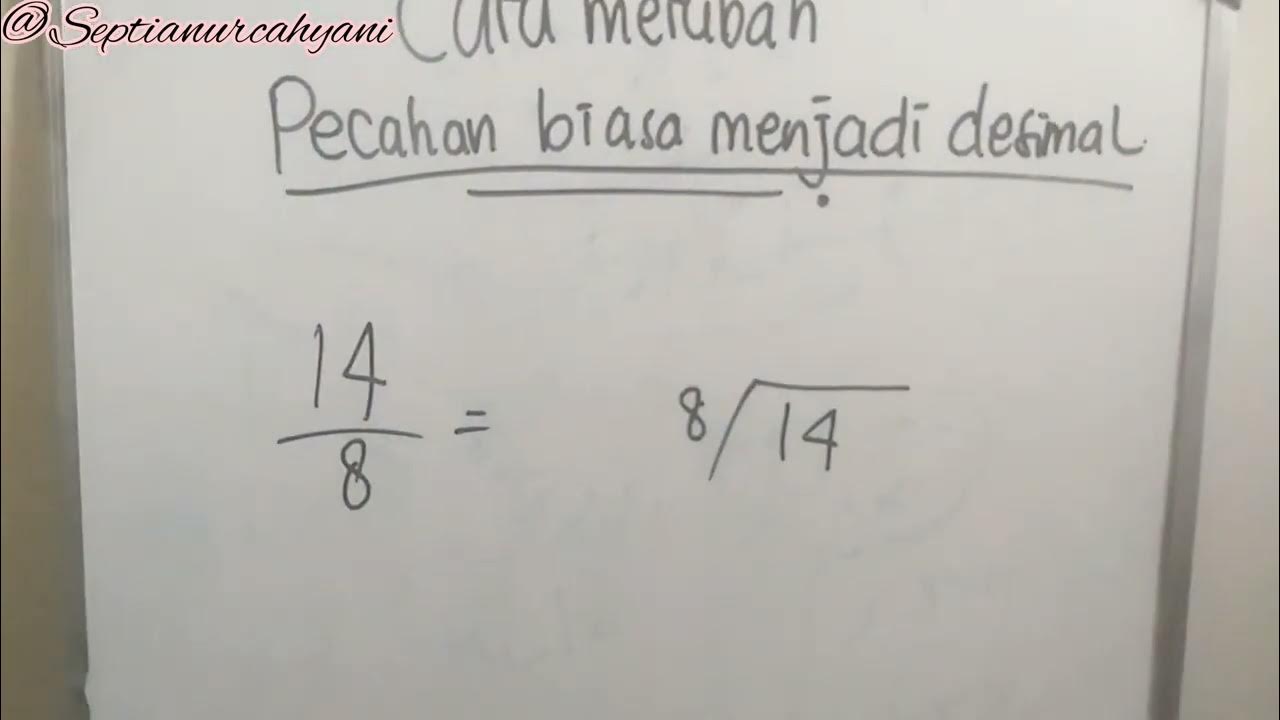 @Septianurcahyani
Cara merubah
Pecahan biasa menjadi desimal.
14
8
=
8/14